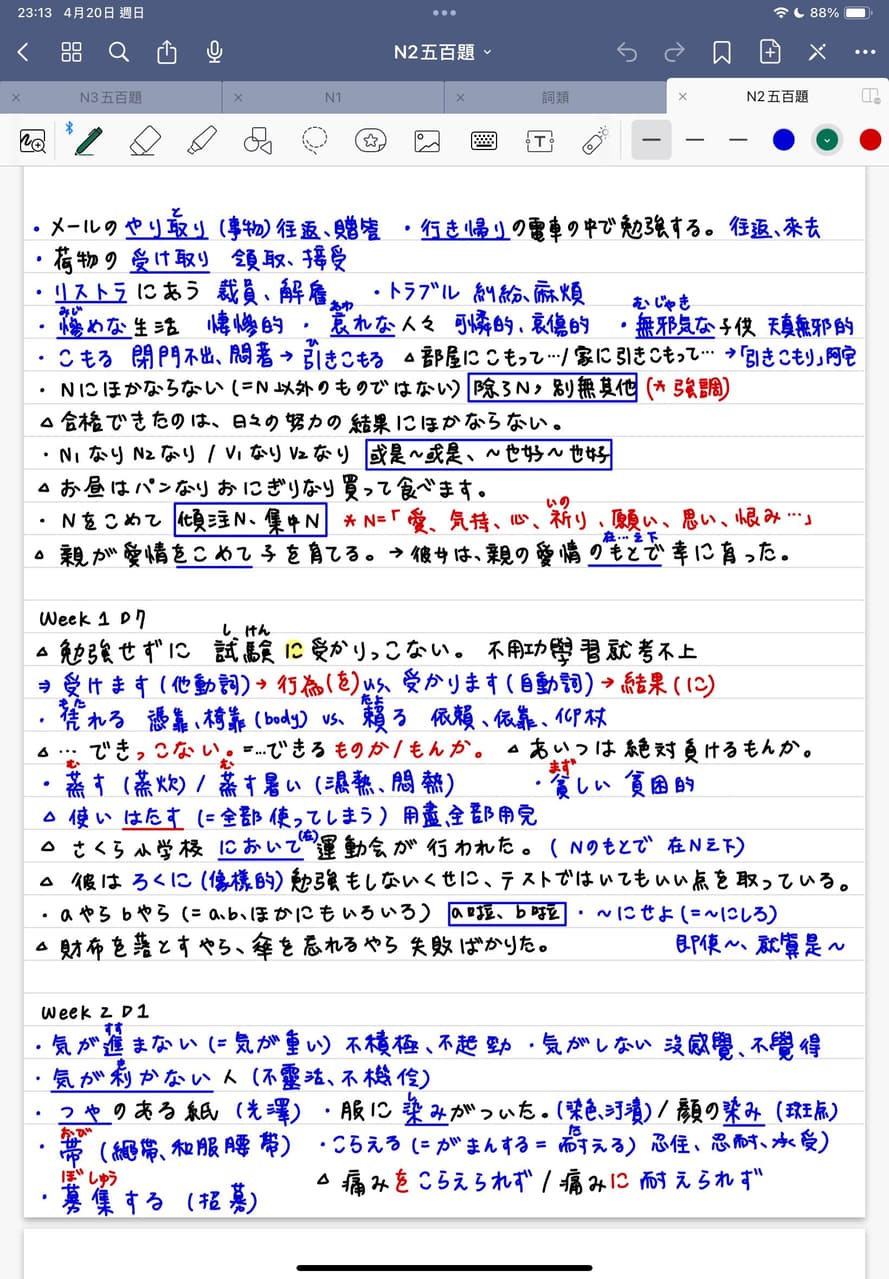 23:13 4月20日 週日 88%
N2五百題
N3五百題 N1 詞類 N2五百題
・メールの やり取り (事物)往返、贈答 ・行き帰りの電車の中で勉強する。 往返、來去
と
・荷物の 受け取り 領取、接受
・リストラにあう 裁員、解雇 ・トラブル 糾紛、麻煩
みじ あわ むじゃき
・惨めな生活 悽慘的 ・哀れな人々 可憐的、哀傷的 ・無邪気な子供 天真無邪的
ひ
・こもる 閉門不出、悶著→引きこもる △部屋にこもって…/家に引きこもって…→「引きこもり」阿宅
・Nにほかならない(=N以外のものではない) 除了N，別無其他 (*強調)
△合格できたのは、日々の努力の結果にほかならない。
・N1なりN2なり / V1なりV2なり 或是～或是、～也好～也好
△お昼はパンなりおにぎりなり買って食べます。
いの
・Nをこめて 傾注N、集中N *N=「愛、気持、心、祈り、願い、思い、恨み…」
在…之下
△親が愛情をこめて子を育てる。→彼女は、親の愛情のもとで幸に育った。
Week 1 D7
し けん
△勉強せずに 試験に受かりっこない。 不用功學習就考不上
⇒受けます(他動詞)→行為(を)vs、受かります(自動詞)→結果(に)
もた たよ
・凭れる 憑靠、椅靠(body) vs、頼る 依賴、依靠、仰杖
△…できっこない。=…できるものか/もんか。 △あいつは絶対負けるもんか。
む む まず
・蒸す(蒸炊)/蒸す暑い(濕熱、悶熱) ・貧しい 貧困的
△使いはたす(=全部使ってしまう)用盡、全部用完
(在)
△さくら小学校において運動会が行われた。(Nのもとで 在N之下)
△彼はろくに(像樣的)勉強もしないくせに、テストではいてもいい点を取っている。
・aやらbやら(=a、b、ほかにもいろいろ) a啦、b啦 ・～にせよ(=～にしろ)
△財布を落とすやら、傘を忘れるやら失敗ばかりた。 即使～、就算是～
Week 2 D1
すす
・気が進まない(=気が重い)不積極、不起勁 ・気がしない 沒感覺、不覺得
き
・気が利かない人(不靈活、不機伶)
し
・つやのある紙(光澤) ・服に染みがついた。(染色、污漬)/顔の染み(斑点)
おび た
・帯(繩帶、和服腰帶) ・こらえる(=がまんする=耐える)忍住、忍耐、承受)
ぼしゅう
△痛みをこらえられず/痛みに耐えられず
・募集する (招募)